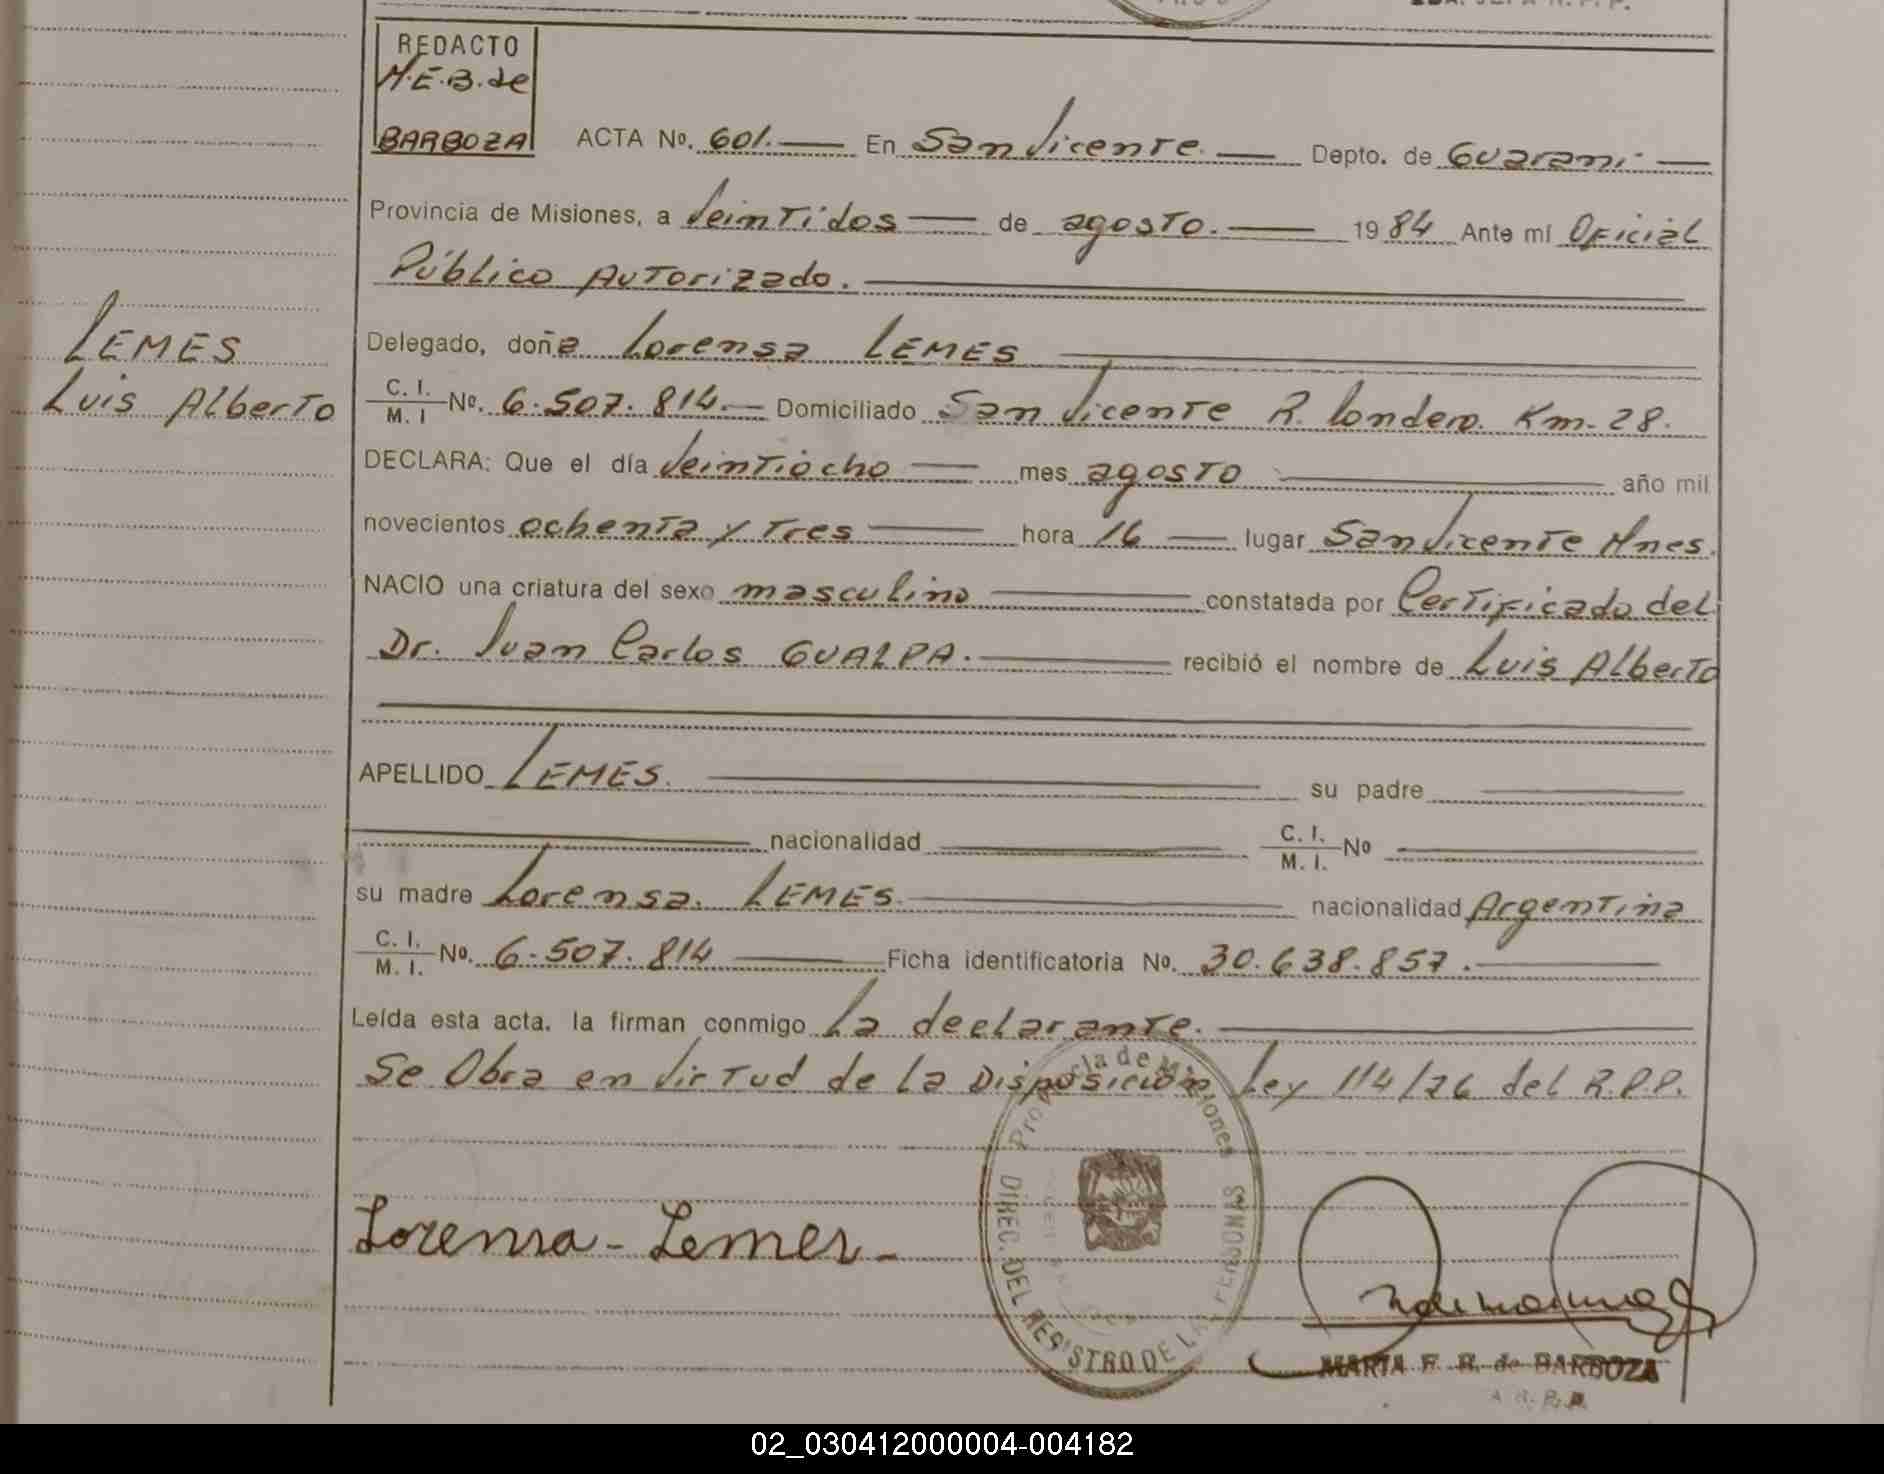 REDACTO
M.E.B. de
BARBOZA
ACTA Nº. 601. En San Vicente. Depto. de Guaraní
Provincia de Misiones, a Veintidos de agosto. 1984 Ante mí Oficial
Público Autorizado.
LEMES
Luis Alberto
Delegado, doña Lorensa LEMES
C. I. / M. I Nº. 6.507.814. Domiciliado San Vicente R. Londero. Km-28.
DECLARA: Que el día Veintiocho mes agosto año mil
novecientos ochenta y Tres hora 16 lugar San Vicente Mnes.
NACIO una criatura del sexo masculino constatada por Certificado del
Dr. Juan Carlos GUALPA. recibió el nombre de Luis Alberto
APELLIDO LEMES. su padre
nacionalidad C. I. / M. I. Nº
su madre Lorensa. LEMES. nacionalidad Argentina
C. I. / M. I. Nº. 6.507.814 Ficha identificatoria Nº. 30.638.857.
Leída esta acta, la firman conmigo La declarante.
Se Obra en Virtud de la Disposición Ley 114/76 del R.P.P.
Provincia de Misiones
DIREC. DEL REGISTRO DE LAS PERSONAS
Lorensa - Lemes -
MARIA E. B. de BARBOZA
02_030412000004-004182